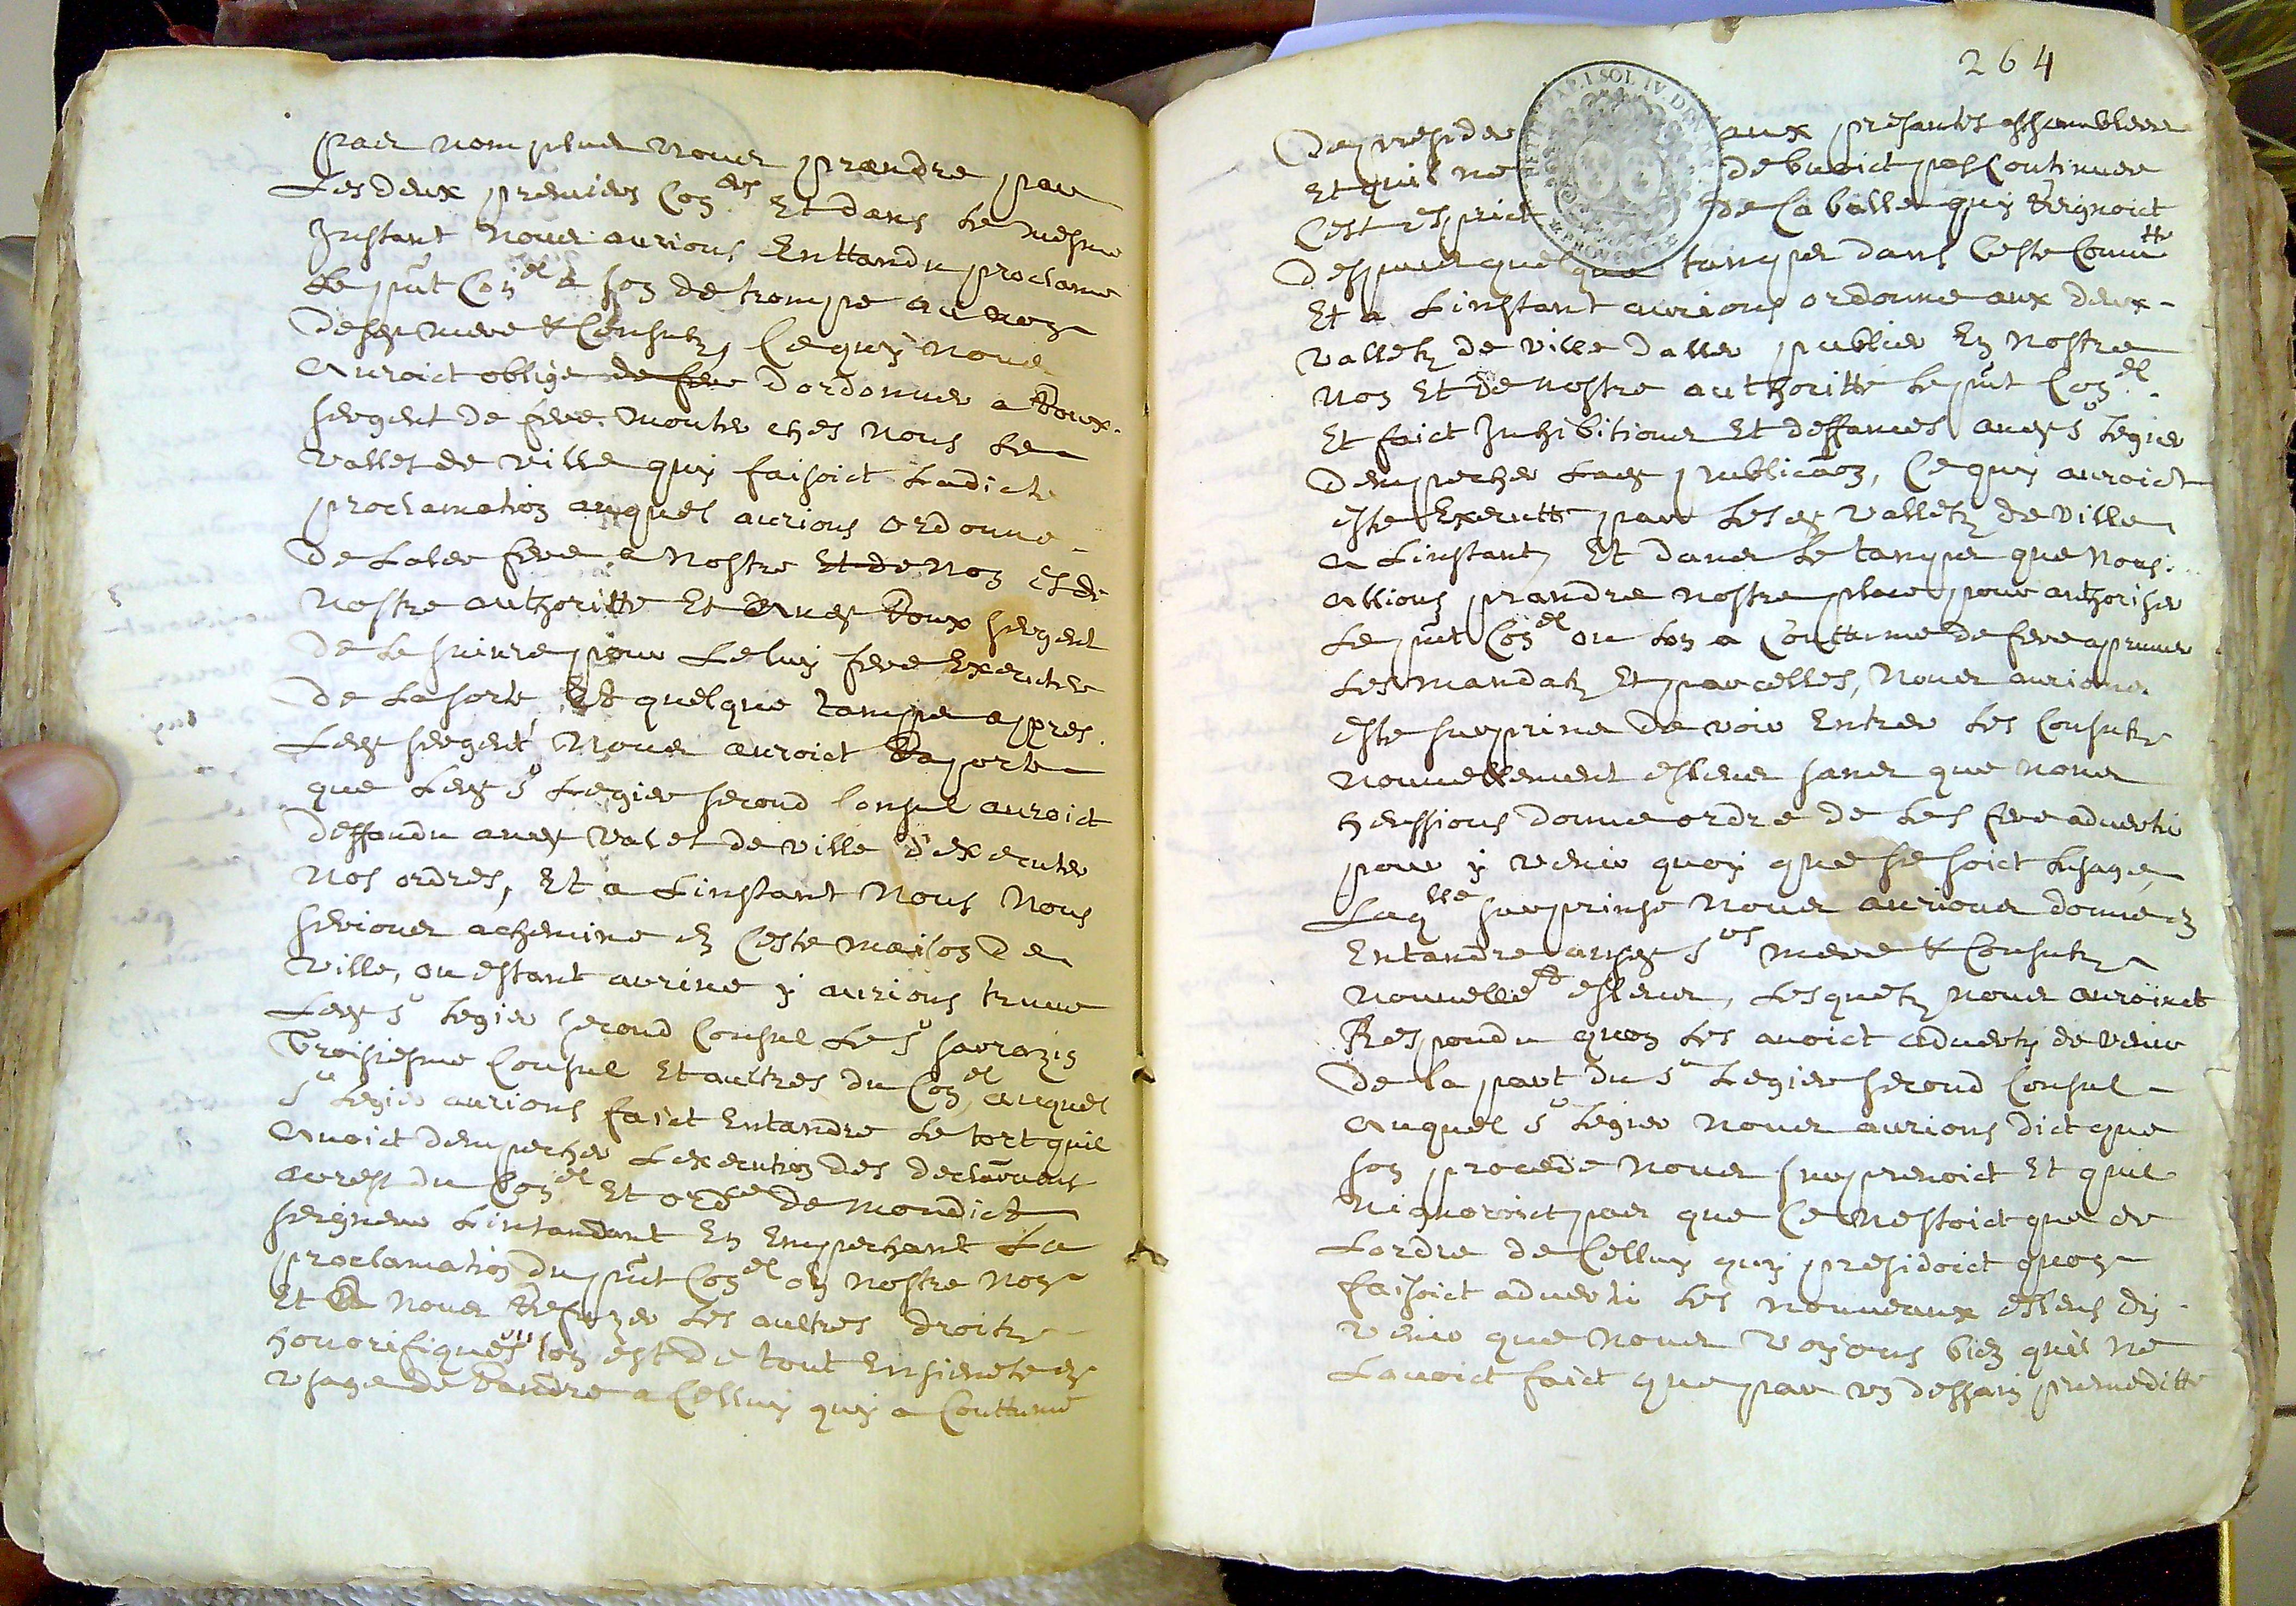 pas non plus nous prandre par
Les deux premiers Con.ers Et dans le mesme
Instant Nous aurions Enttandu proclame
Le pnt Con.el a son de trompe au nom
desd mere & Consulz, Ce quy nous
Auroict oblige de fere dordonner a Roux
sergent de fere monter ches nous Le
vallet de ville quy faisoict Ladicte
proclamation auquel aurions ordonne
de Laler fere a Nostre Et de Non et de
Nostre authoritte Et Aud Roux sergent
de Le suivre pour Le luy fere Executer
de La sorte Et quelque tamps appres
Led sergent Nous auroict Raporte
que Led sr Legier second Consul auroict
deffandu aud valet de ville d'executer
Nos ordres, Et a Linstant Nous Nous
serions achemine en Ceste maison de
ville, ou estant arrive y aurions truve
Led sr Legier second Consul Le sr sarrazin
Troisiesme Consul Et aultres du Con.el auquel
sr Legier aurions faict Entandre Le tort quil
Avoict dempecher Lexecution des declarations
arrest du Con.el Et ordce de mondict
seigneur Lintandant En Empechant La
proclamation du pnt Con.el en nostre nom
Et A nous Refuzer Les aultres droitz
honorifiques lon est de tout
usage de Randre a Celluy quy a Couttume
264
De presider aux presantes assamblees
Et quil ne debvoict pas Continuer
Cest esprict de Caballe quy Regnoict
despuis quelque tamps dans Ceste Comtte
Et a Linstant aurions ordonne aux deux
valletz de ville daller publier En nostre
non Et de nostre authoritte Le pnt Con.el
Et faict Inhibitions Et deffances aud sr Legier
dempecher Lad publicaon, Ce quy auroict
este Executte par Lesd valletz de ville
a Linstant, Et dans Le tamps que Nous
allions prandre nostre place pour authoriser
Le pnt Con.el ou Lon a Couttume de fere apruver
Les mandatz Et parcelles, Nous aurions
este surprins de voir Entrer Les Consulz
nouvellement esleus sans que nous
heussions donne ordre de Les fere adverti
pour y venir quoy que se soict Lusage,
Laqlle surprinse Nous aurions donne a
Entandre ausd srs mere & Consulz
nouvellet esleus, Lesquelz nous auroinct
Respondu quon Les avoict adverty de venir
de La part du sr Legier second Consul
Auquel sr Legier nous aurions dict que
son procede nous surprenoict Et quil
Nignoroict pas que Ce Nestoict que de
Lordre de Celluy quy presidoict quon
faisoict adverti Les nouveaux esleus dy
venir que nous voyons bien quil ne
Lavoict faict que par un dessain premeditte